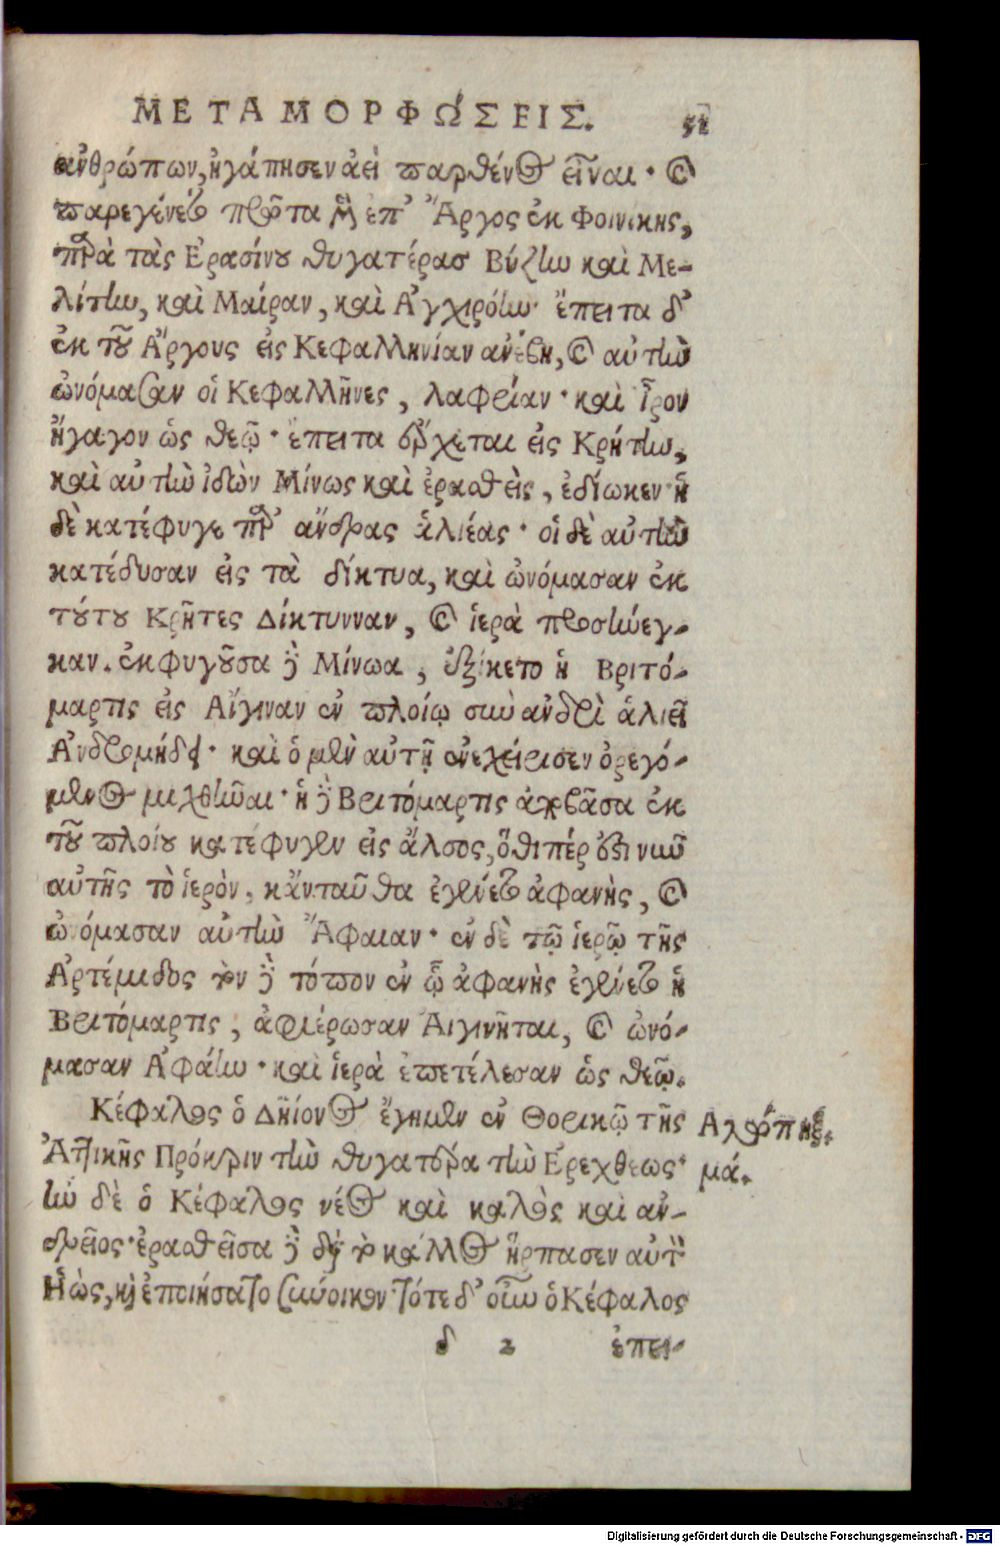 ΜΕΤΑΜΟΡΦΩΣΕΙΣ. 51
ἀνθρώπων, ἠγάπησεν ἀεὶ παρθένος εἶναι· καὶ
παρεγένετο πρῶτα μὲν ἐπ' Ἄργος ἐκ Φοινίκης,
παρὰ τὰς Ἐρασίνου θυγατέρας Βύζην καὶ Με-
λίτην, καὶ Μαίραν, καὶ Ἀγχιρόην· ἔπειτα δ'
ἐκ τοῦ Ἄργους εἰς Κεφαλληνίαν ἀνέβη, καὶ αὐτὴν
ὠνόμασαν οἱ Κεφαλλῆνες, λαφρίαν· καὶ ἷρον
ἤγαγον ὡς θεῷ· ἔπειτα ἔρχεται εἰς Κρήτην,
καὶ αὐτὴν ἰδὼν Μίνως καὶ ἐρασθεὶς, ἐδίωκεν· ἡ
δὲ κατέφυγε παρ' ἄνδρας ἁλιέας· οἱ δὲ αὐτὴν
κατέδυσαν εἰς τὰ δίκτυα, καὶ ὠνόμασαν ἐκ
τούτου Κρῆτες Δίκτυνναν, καὶ ἱερὰ προσήνεγ-
καν. ἐκφυγοῦσα δὲ Μίνωα, ἐξίκετο ἡ Βριτό-
μαρτις εἰς Αἴγιναν ἐν πλοίῳ σὺν ἀνδρὶ ἁλιεῖ
Ἀνδρομήδει· καὶ ὁ μὲν αὐτῇ ἐνεχείρισεν ὀρεγό-
μενος μιχθῆναι· ἡ δὲ Βριτόμαρτις ἀποβᾶσα ἐκ
τοῦ πλοίου κατέφυγεν εἰς ἄλσος, ὅθι πέρ ἐστι νῦν
αὐτῆς τὸ ἱερὸν, κἄνταῦθα ἐγένετο ἀφανὴς, καὶ
ὠνόμασαν αὐτὴν Ἄφαιαν· ἐν δὲ τῷ ἱερῷ τῆς
Ἀρτέμιδος τὸν δὲ τόπον ἐν ᾧ ἀφανὴς ἐγένετο ἡ
Βριτόμαρτις, ἀφιέρωσαν Αἰγινῆται, καὶ ὠνό-
μασαν Ἀφάιην· καὶ ἱερὰ ἐπετέλεσαν ὡς θεῷ.
Κέφαλος ὁ Δηίονος ἔγημεν ἐν Θορικῷ τῆς
Ἀττικῆς Πρόκριν τὴν θυγατέρα τὴν Ἐρεχθέως·
ἦν δὲ ὁ Κέφαλος νέος καὶ καλὸς καὶ ἀν-
δρεῖος· ἐρασθεῖσα δὲ διὰ τὸ κάλλος ἥρπασεν αὐτὸν
Ἠὼς, καὶ ἐποιήσατο σύνοικον· τότε δ' οὖν ὁ Κέφαλος
Ἀλώπηξ.
μά.
δ 2 ἐπει-
Digitalisierung gefördert durch die Deutsche Forschungsgemeinschaft - DFG